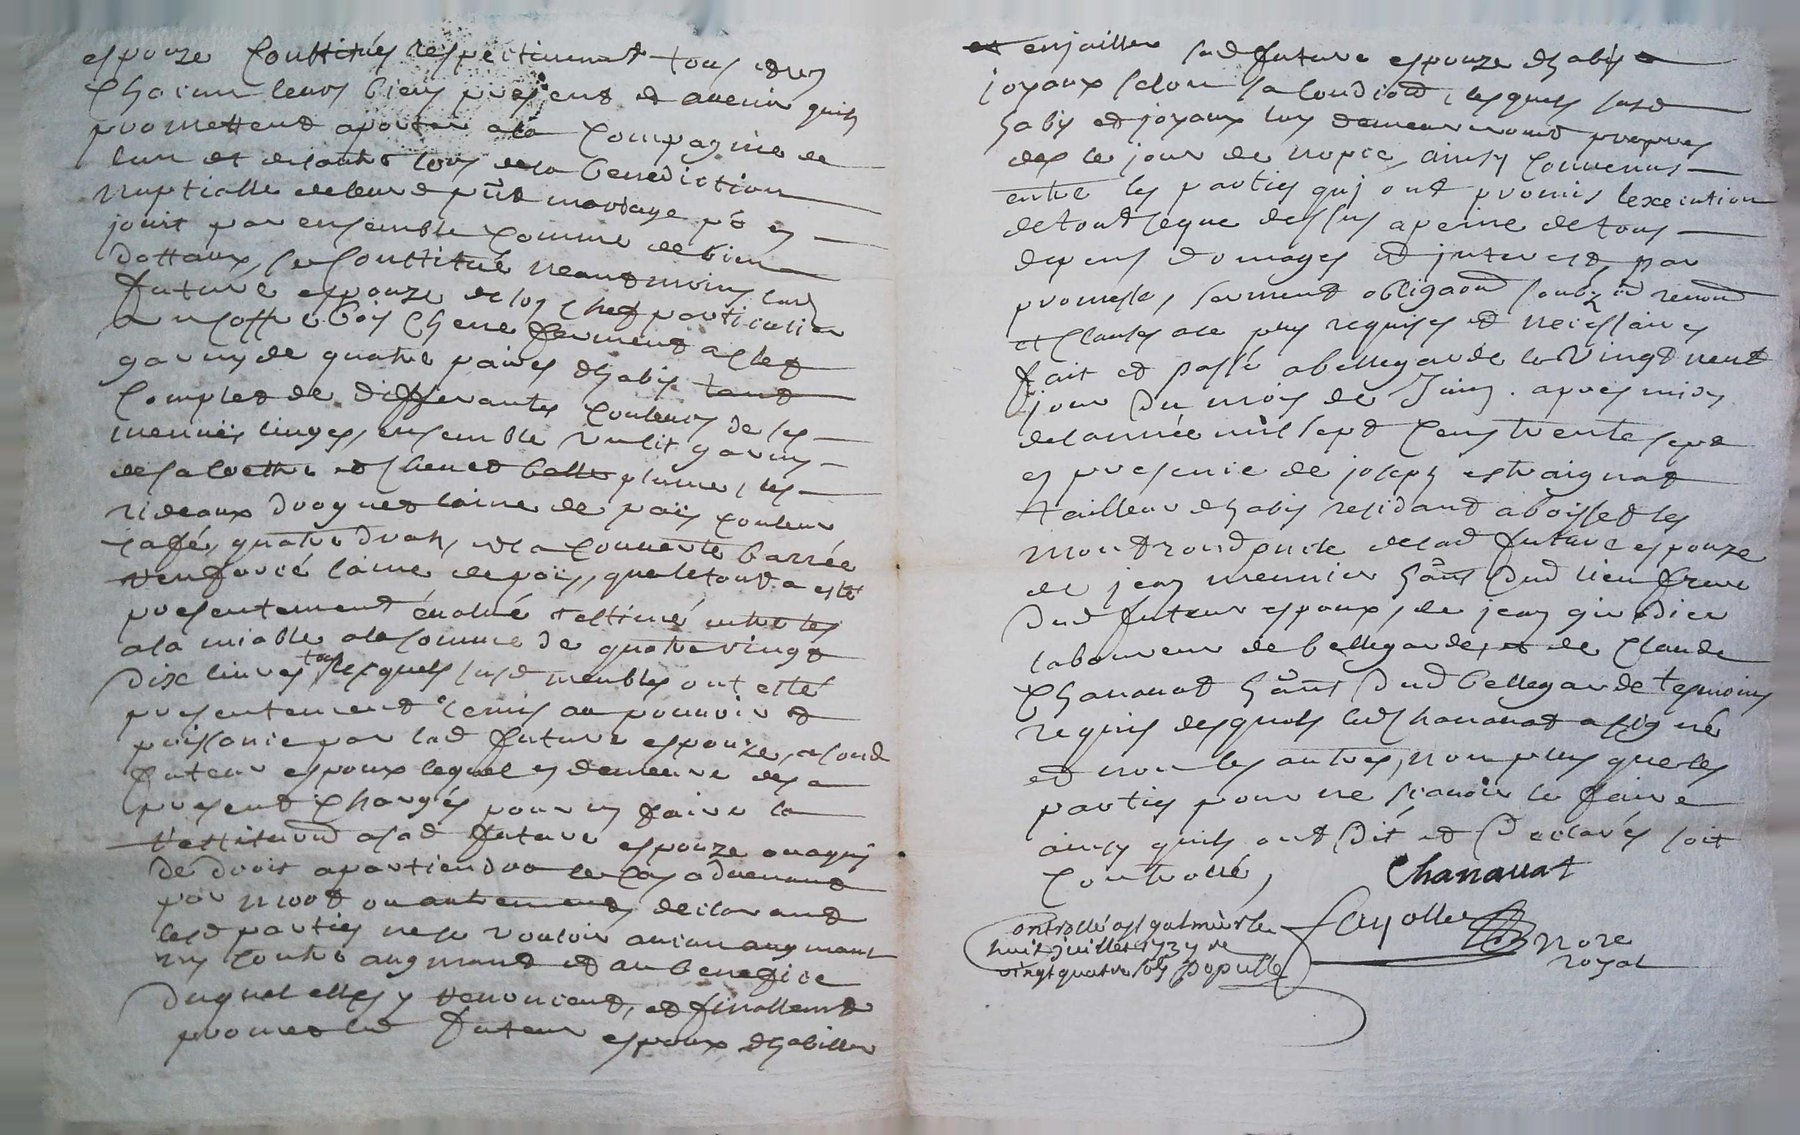 espouze Constitués respectivement tous et un
Chacun leurs biens present et avenir quils
promettent aporter a la Compagnie de
lun et de lautre lors de la benediction
nuptialle de leur d pnt mariage pr en
jouir par ensemble Comme de bien
dottaux, se Constitue neantmoins lad
future espouze de son Chef particulier
un coffre bois Chene fermant a clef
garny de quatre paires dhabis
Complet de differantes Couleurs de ses
menues linges, ensemble un lit garny
de sa coettre et Chevet plume, les
rideaux droguet laine de païs Couleur
Café, quatre draps, et la Couverte barrée
renforcé laine de païs, que le tout a esté
presentement évalué et estimé entre les
a la miable a la somme de quatre vingt
dix livres tous lesquels susd meubles ont esté
presentement remis au pouvoir et
puissance par lad future espouze, a sond
futeur espoux lequel en demeure des a
present Chargés pour en faire la
restitution a sad future espouze ou a qui
de droit apartiendra le Cas advenant
par mort ou autrement declarant
lesd parties ne se vouloir aucun augment
ny Contre augment et au benefice
duquel elles y renoncent, et finallement
promet led futeur espoux dhabiller
et enjailler sad future espouze dhabis
joyaux selon sa Condion, lesquels susd
habis et joyaux luy demeureront propres
des le jour de nopce, ainsy Convenus
entre les parties qui ont promis lexecution
de tout ce que dessus a peine de tous
depens domages et interest par
promesse, serment obligaon soubz on renon
et Clauses a ce plus requises et necessaires
fait et passé a bellegarde le vingt neuf
jour du mois de Juin . apres midy
de lannée mil sept Cens trente sept
en presence de joseph estraignat
tailleur dhabis residant a boisset les
montrond oncle de lad future espouze
de jean meunier hant dud lieu frere
dud futeur espoux, de jean girodier
laboureur de bellegarde, et de Claude
Chanavat hant dud bellegarde temoins
requis desquels led Chanavat a signé
et non les autres, non plus que les
parties pour ne scavoir le faire
ainsy quils ont dit et declarés soit
Controllé,
Chanavat
Controllé a st galmier le
huit juillet 1737 re
vingt quatre sols
fayolle
nore
royal